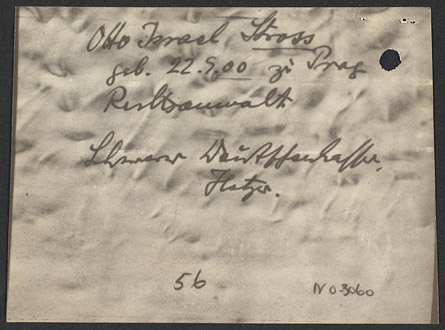 Otto Israel Stross
geb. 22.9.00 zu Prag
Rechtsanwalt
Schwerer Deutschenhasser,
Hetzer.
56
NO 3060